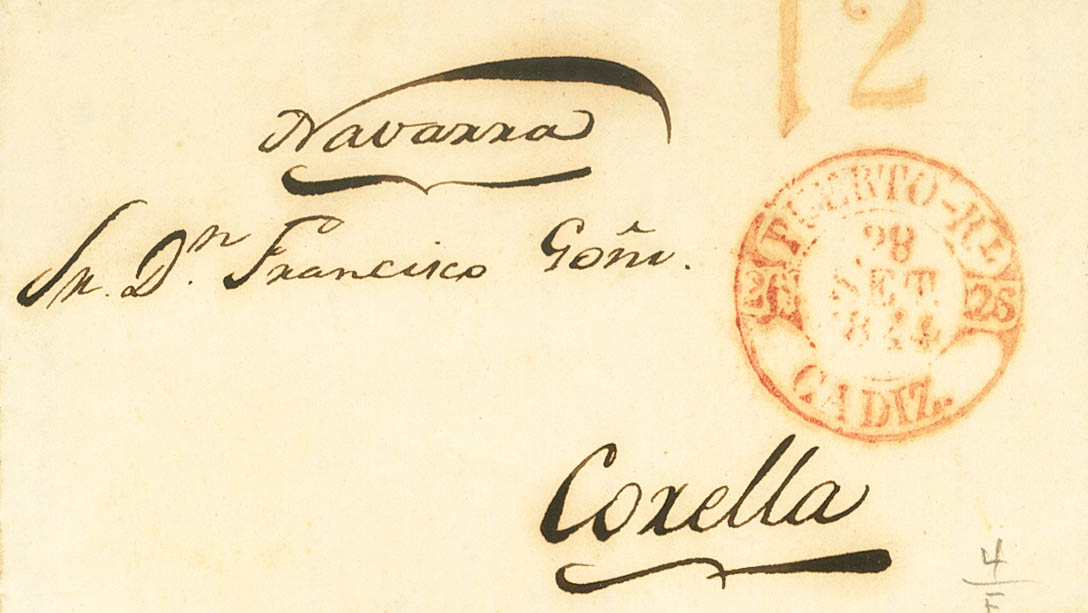 12
Navarra
Sr. Dn. Francisco Goñi.
PUERTO-RL
28
SET.
1844
26 26
CADIZ.
Corella
4